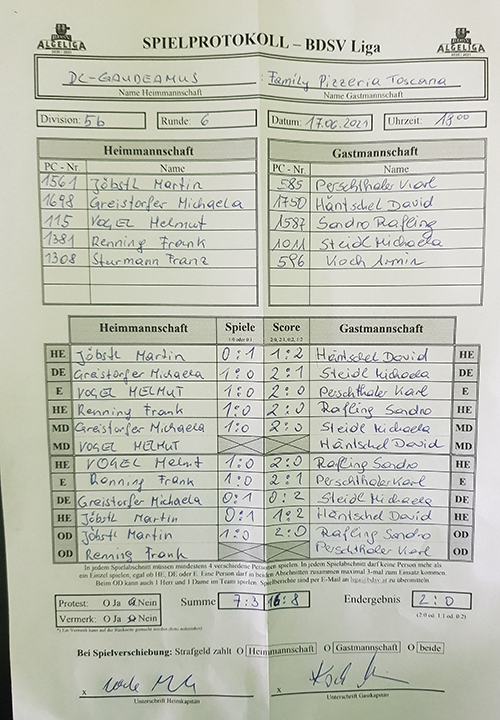 ALGELIGA
SPIELPROTOKOLL – BDSV Liga
ALGELIGA
DC-GAUDEAMUS : Family Pizzeria Toscana
Name Heimmannschaft Name Gastmannschaft
Division: 5b Runde: 6 Datum: 17.06.2021 Uhrzeit: 19⁰⁰
Heimmannschaft Gastmannschaft
PC - Nr. Name PC - Nr. Name
1561 Jöbstl Martin 585 Perschthaler Karl
1698 Greistorfer Michaela 1750 Häntschel David
115 VOGEL Helmut 1587 Sandro Rafling
1381 Renning Frank 1011 Steidl Michaela
1308 Sturmann Franz 596 Koch Armin
Heimmannschaft Spiele Score Gastmannschaft
1:0 oder 0:1 2:0, 2:1, 0:2, 1:2
HE Jöbstl Martin 0:1 1:2 Häntschel David HE
DE Greistorfer Michaela 1:0 2:1 Steidl Michaela DE
E VOGEL HELMUT 1:0 2:0 Perschthaler Karl E
HE Renning Frank 1:0 2:0 Rafling Sandro HE
MD Greistorfer Michaela 1:0 2:0 Steidl Michaela MD
MD VOGEL HELMUT Häntschel David MD
HE VOGEL Helmut 1:0 2:0 Rafling Sandro HE
E Renning Frank 1:0 2:1 Perschthaler Karl E
DE Greistorfer Michaela 0:1 0:2 Steidl Michaela DE
HE Jöbstl Martin 0:1 1:2 Häntschel David HE
OD Jöbstl Martin 1:0 2:0 Rafling Sandro OD
OD Renning Frank Perschthaler Karl OD
In jedem Spielabschnitt müssen mindestens 4 verschiedene Personen spielen. In jedem Spielabschnitt darf keine Person mehr als
ein Einzel spielen, egal ob HE, DE oder E. Eine Person darf in beiden Abschnitten zusammen maximal 3-mal zum Einsatz kommen.
Beim OD kann auch 1 Herr und 1 Dame im Team spielen. Spielberichte sind per E-Mail an liga@bdsv.at zu übermitteln
Protest: O Ja O Nein Summe 7:3 16:8 Endergebnis 2:0
Vermerk: O Ja O Nein (2:0 od. 1:1 od. 0:2)
*) Ein Vermerk kann auf der Rückseite gemacht werden (bitte ankreuzen)
Bei Spielverschiebung: Strafgeld zahlt O Heimmannschaft O Gastmannschaft O beide
x x
Unterschrift Heimkapitän Unterschrift Gastkapitän